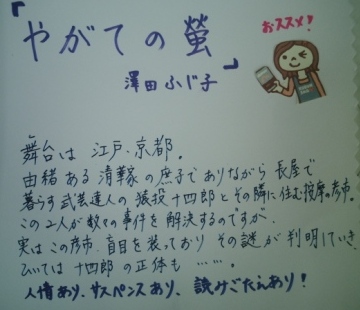 『やがての螢』
澤田ふじ子
おススメ!
舞台は 江戸、京都。
由緒ある 清華家の庶子でありながら 長屋で
暮らす武芸達人の 猿投十四郎とその隣に住む按摩の彦市。
この2人が数々の事件を解決するのですが、
実はこの彦市、盲目を装っており その謎が判明していき、
ひいては 十四郎の正体も……。
人情あり、サスペンスあり、読みごたえあり!